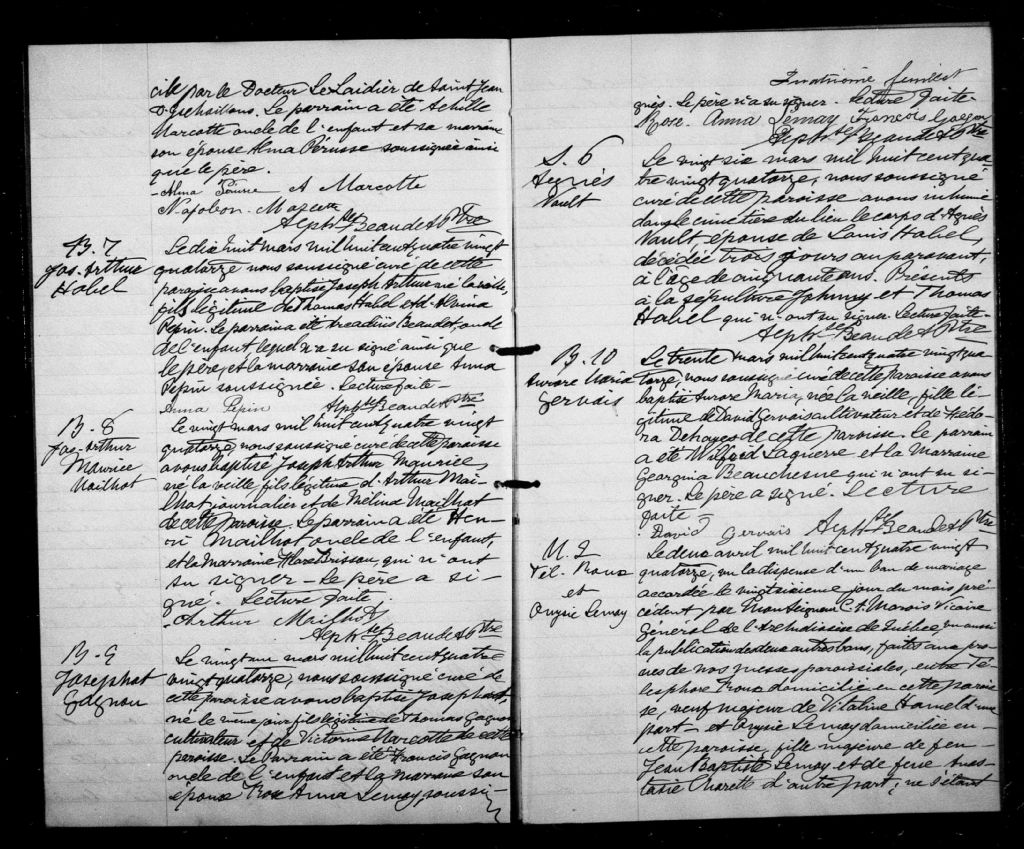 cile par le Docteur Le Laidier de Saint Jean
Deschaillons. Le parrain a été Achille
Marcotte oncle de l'enfant et sa marraine
son épouse Alma Pérusse soussignée ainsi
que le père.
Alma Pérusse A Marcotte
Napoléon Marcotte
Alph. Beaudet Ptre
B. 7
Jos. Arthur
Habel
Le dix huit mars mil huit cent quatre vingt
quatorze nous soussigné curé de cette
paroisse avons baptisé Joseph Arthur né la veille,
fils légitime de Thomas Habel et d'Alvina
Pepin. Le parrain a été Beaudet, oncle
de l'enfant lequel n'a su signé ainsi que
le père, et la marraine son épouse Anna
Pepin soussignée. Lecture faite.
Anna Pepin Alph. Beaudet Ptre
B. 8
Jos. Arthur
Maurice
Mailhot
Le vingt mars mil huit cent quatre vingt
quatorze nous soussigné curé de cette paroisse
avons baptisé Joseph Arthur Maurice,
né la veille, fils légitime d'Arthur Mai-
lhot journalier et de Mélina Mailhot
de cette paroisse. Le parrain a été Hen-
ri Mailhot oncle de l'enfant
et la Marraine Brisson, qui n'ont
su signer - Le père a si-
gné. Lecture faite.
Arthur Mailhot
Alph. Beaudet Ptre
B. 9
Josephat
Gagnon
Le vingt un mars mil huit cent quatre
vingt quatorze, nous soussigné curé de
cette paroisse avons baptisé Josephat,
né le même jour fils légitime de Thomas Gagnon
cultivateur et de Victorine Marcotte de cette
paroisse. Le Parrain a été Francis Gagnon
oncle de l'enfant et la marraine son
épouse Rose Anna Lemay, soussi-
Quatrième feuillet
gnés. Le père n'a su signer. Lecture faite.
Rose Anna Lemay François Gagnon
Alph. Beaudet Ptre
S. 6
Agnès
Vault
Le vingt six mars mil huit cent qua-
tre vingt quatorze, nous soussigné
curé de cette paroisse avons inhumé
dans le cimetière du lieu le corps d'Agnès
Vault, épouse de Louis Habel,
décédée trois jours auparavant,
à l'âge de cinquante ans. Présents
à la sépulture Johnny et Thomas
Habel qui n'ont su signer. Lecture faite.
Alph. Beaudet Ptre
B. 10
Aurore Maria
Gervais
Le trente mars mil huit cent quatre vingt qua-
torze, nous soussigné curé de cette paroisse avons
baptisé Aurore Maria, née la veille, fille lé-
gitime de David Gervais cultivateur et de Hédo-
ra Dehayes de cette paroisse. Le parrain
a été Wilfrid Laquerre et la Marraine
Georgina Beauchesne qui n'ont su si-
gner. Le père a signé. Lecture
faite -
David Gervais Alph. Beaudet Ptre
M. 2
Tél. Roux
et
Onésie Lemay
Le deux avril mil huit cent quatre vingt
quatorze, vu la dispense d'un ban de mariage
accordée le vingt sixième jour du mois pré-
cédent, par Monseigneur C. A. Marois Vicaire
Général de l'Archidiocèse de Québec, vu aussi
la publication des deux autres bans, faites aux prô-
nes de nos messes paroissiales, entre Té-
lesphore Roux domicilié en cette parois-
se, veuf majeur de Vitaline Hamel d'une
part - et Onésie Lemay domiciliée en
cette paroisse, fille majeure de feu
Jean Baptiste Lemay et de feue Anas-
tasie Charette d'autre part; ne s'étant